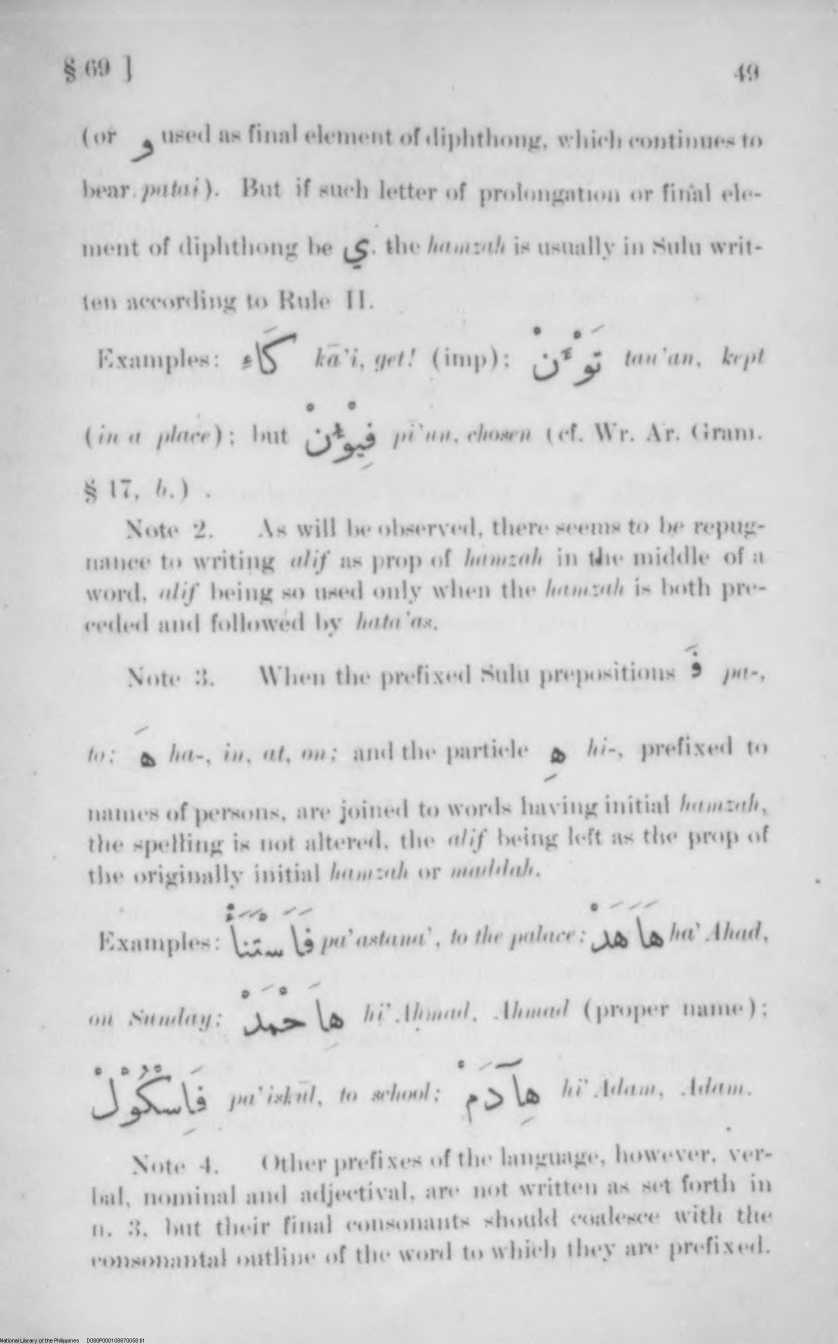 § 69 ] 49
(or و used as final element of diphthong, which continues to
bear patai). But if such letter of prolongation or final ele-
ment of diphthong be ي, the hamzah is usually in Sulu writ-
ten according to Rule II.
Examples: كَاءِ kā’i, get! (imp); تَوْءَنْ tau’an, kept
(in a place); but pi’un, chosen (cf. Wr. Ar. Gram.
§ 17, b.) .
Note 2. As will be observed, there seems to be repug-
nance to writing alif as prop of hamzah in the middle of a
word, alif being so used only when the hamzah is both pre-
ceded and followed by hata’as.
Note 3. When the prefixed Sulu prepositions فَ pa-,
to; هَ ha-, in, at, on; and the particle هِ hi-, prefixed to
names of persons, are joined to words having initial hamzah,
the spelling is not altered, the alif being left as the prop of
the originally initial hamzah or maddah.
Examples: pa’astana’, to the palace; هَاَهَدْ ha’Ahad,
on Sunday; هِاَحْمَدْ hi’Aḥmad, Ahmad (proper name);
فَاِسْكُوْلْ pa’iskūl, to school; هِآدَمْ hi’Ādam, Adam.
Note 4. Other prefixes of the language, however, ver-
bal, nominal and adjectival, are not written as set forth in
n. 3, but their final consonants should coalesce with the
consonantal outline of the word to which they are prefixed.
National Library of the Philippines